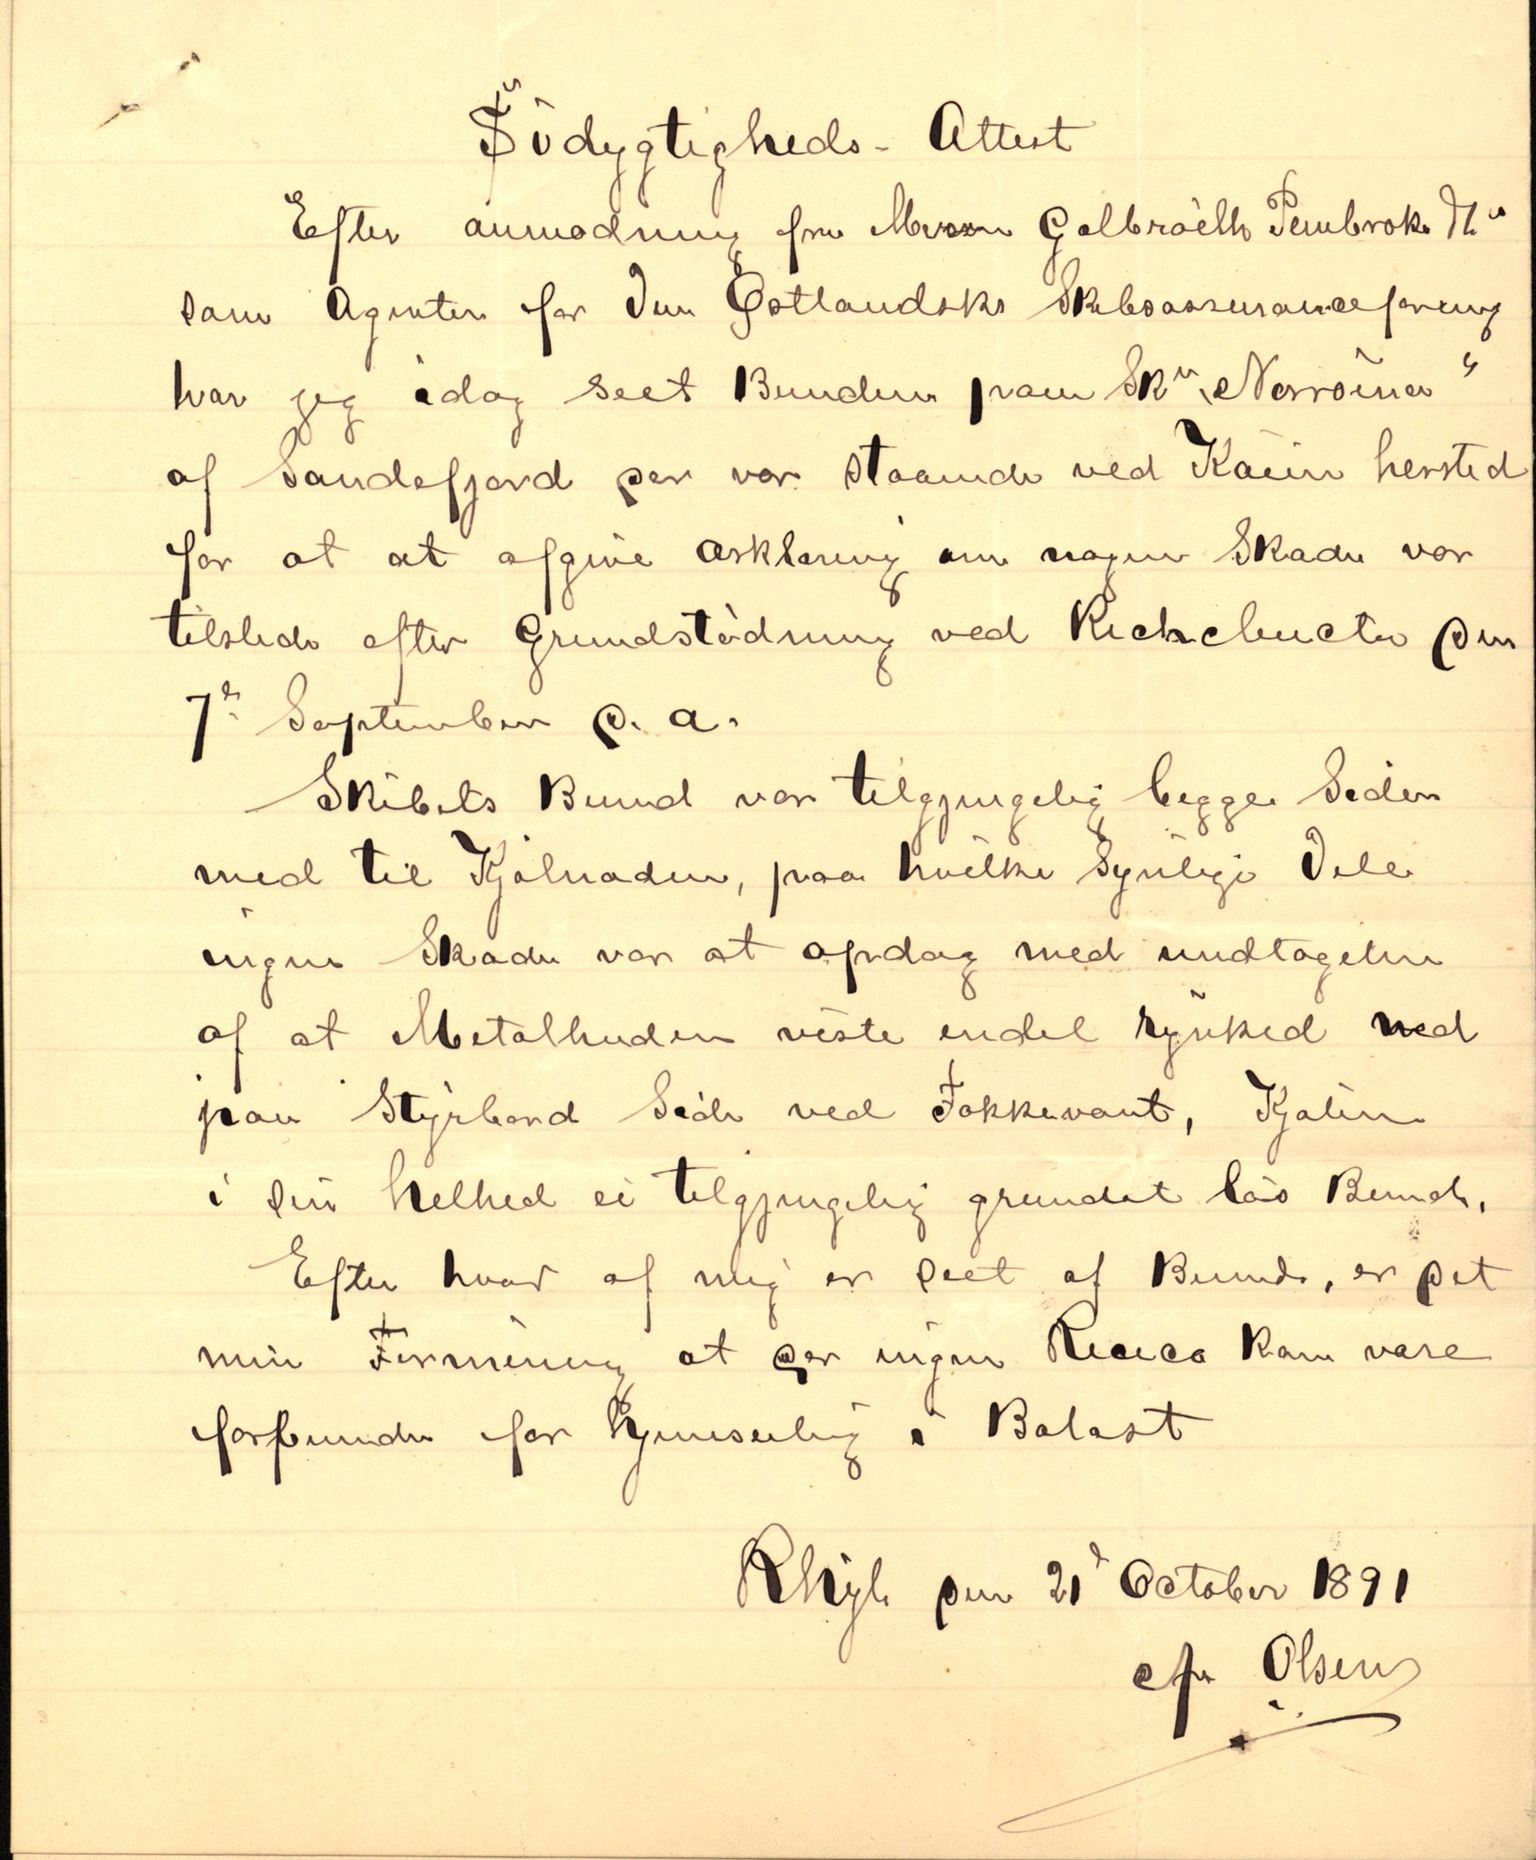 Södygtigheds - Attest
Efter anmodning fra Galbraith Pembroke
som Agenter for Den Östlandske Skibsassuranceforening
har jeg idag seet Bunden paa Skn „Norröna"
af Sandefjord der var staaende ved Kaien hersted
for at at afgive ærklæring om nogen Skade var
tilstede efter Grundstödning ved Richebucto den
7de September d. a.
Skibets Bund var tilgjengelig begge Sider
ned til Kjölnaden, paa hvilke Synlige Dele
ingen Skade var at opdag med undtagelse
af at Metalhuden viste endel rynked ned
paa Styrbord Side ved Fokkevant, Kjölen
i sin helhed ei tilgjengelig grundet lös Bund.
Efter hvad af mig er seet af Bunde, er det
min Formening at der ingen Risico kan være
forbunden for hjemseiling i Balast
Rhyl den 21 October 1891
Olsen